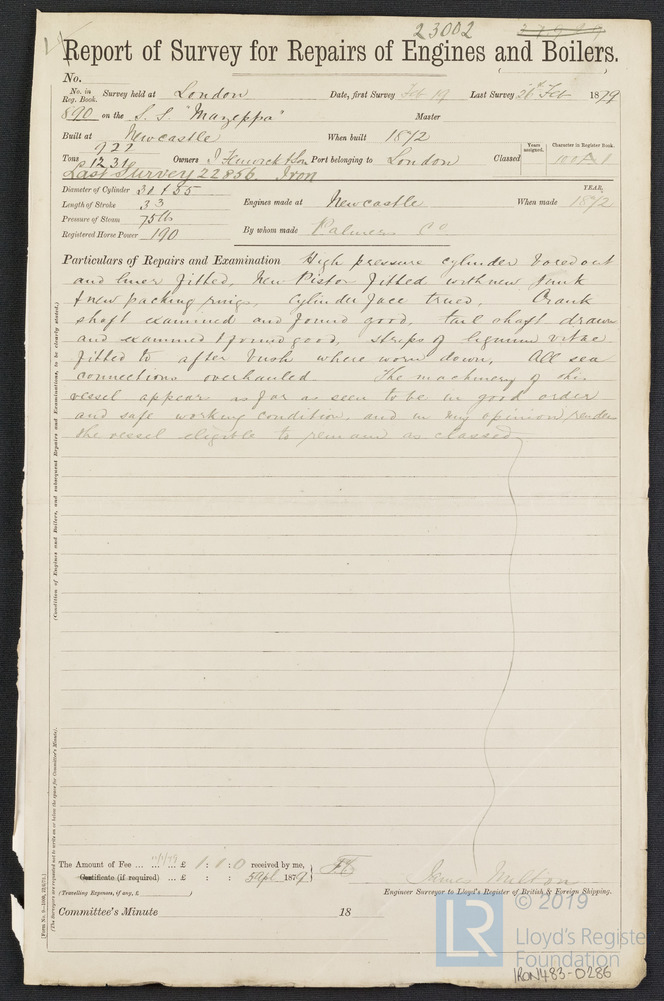 23002
Report of Survey for Repairs of Engines and Boilers.
No.
No. in Reg. Book. Survey held at London Date, first Survey Feb 19 Last Survey 21st Feb 1879
890 on the S.S. "Mazeppa" Master
Built at Newcastle When built 1872
Tons 1231 Owners J Fenwick & Son Port belonging to London Classed Years assigned. Character in Register Book. 100A1
Last Survey 22856. Iron
Diameter of Cylinder YEAR,
Length of Stroke 33 Engines made at Newcastle When made 1872
Pressure of Steam 75 lbs
Registered Horse Power 190 By whom made Palmers Co
Particulars of Repairs and Examination High pressure cylinder bored out
and liner fitted, New Piston fitted with new junk
& new packing rings, Cylinder face trued, Crank
shaft examined and found good, tail shaft drawn
and examined & found good, strips of lignum vitae
fitted to after bush where worn down, All sea
connections overhauled. The machinery of this
vessel appears as far as seen to be in good order
and safe working condition, and in my opinion renders
the vessel eligible to remain as classed
(Condition of Engines and Boilers, and subsequent Repairs and Examinations, to be clearly stated.)
(The Surveyors are requested not to write on or below the space for Committee's Minute).
The Amount of Fee ... £ 1 : 1 : 0 received by me,
Certificate (if required) ... £ : : 5 Apl 1879
(Travelling Expenses, if any, £ )
James Milton
Engineer Surveyor to Lloyd's Register of British & Foreign Shipping.
Committee's Minute 18
© 2019
LR Lloyd's Register
Foundation
IRON483-0286